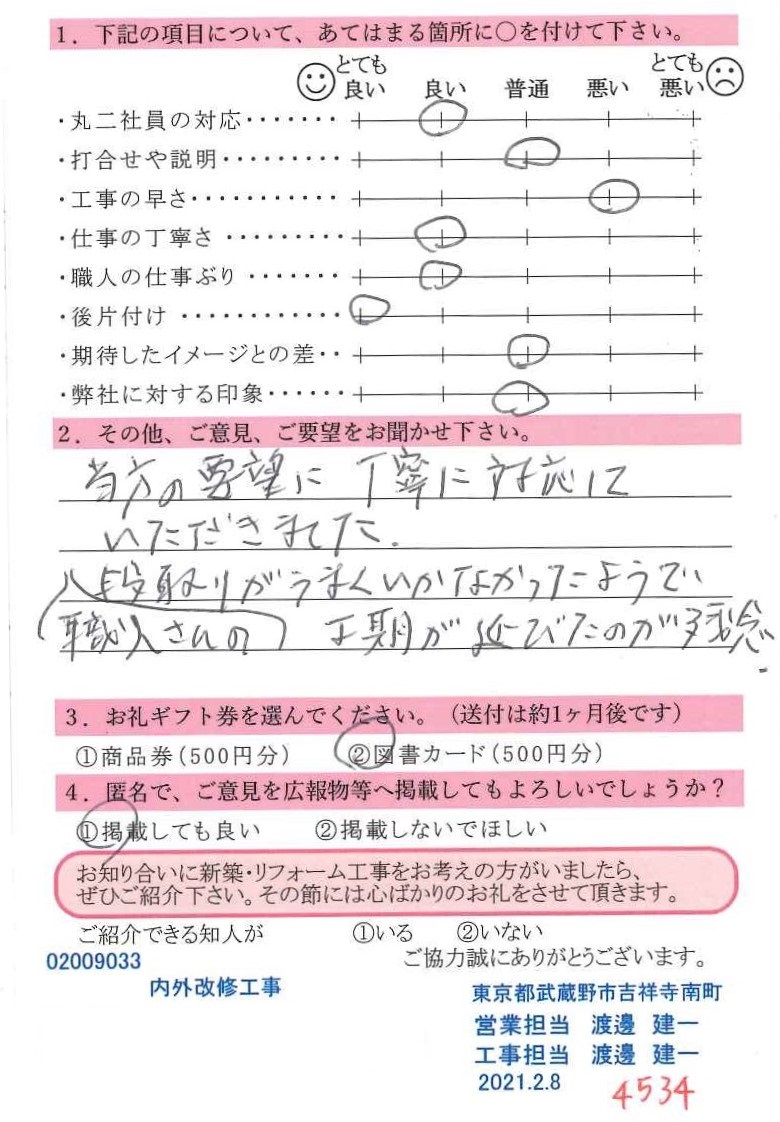 1. 下記の項目について、あてはまる箇所に○を付けて下さい。
とても良い 良い 普通 悪い とても悪い
・丸二社員の対応・・・・・・・
・打合せや説明・・・・・・・・・
・工事の早さ・・・・・・・・・・・・
・仕事の丁寧さ・・・・・・・・・
・職人の仕事ぶり・・・・・・・
・後片付け・・・・・・・・・・・・
・期待したイメージとの差・・
・弊社に対する印象・・・・・・
2. その他、ご意見、ご要望をお聞かせ下さい。
当方の要望に丁寧に対応して
いただきました.
段取りがうまくいかなかったようで、
職人さんの 工期が延びたのが残念.
3. お礼ギフト券を選んでください。(送付は約1ヶ月後です)
①商品券(500円分) ②図書カード(500円分)
4. 匿名で、ご意見を広報物等へ掲載してもよろしいでしょうか？
①掲載しても良い ②掲載しないでほしい
お知り合いに新築・リフォーム工事をお考えの方がいましたら、
ぜひご紹介下さい。その節には心ばかりのお礼をさせて頂きます。
ご紹介できる知人が ①いる ②いない
ご協力誠にありがとうございます。
02009033
内外改修工事
東京都武蔵野市吉祥寺南町
営業担当 渡邊 建一
工事担当 渡邊 建一
2021.2.8
4534